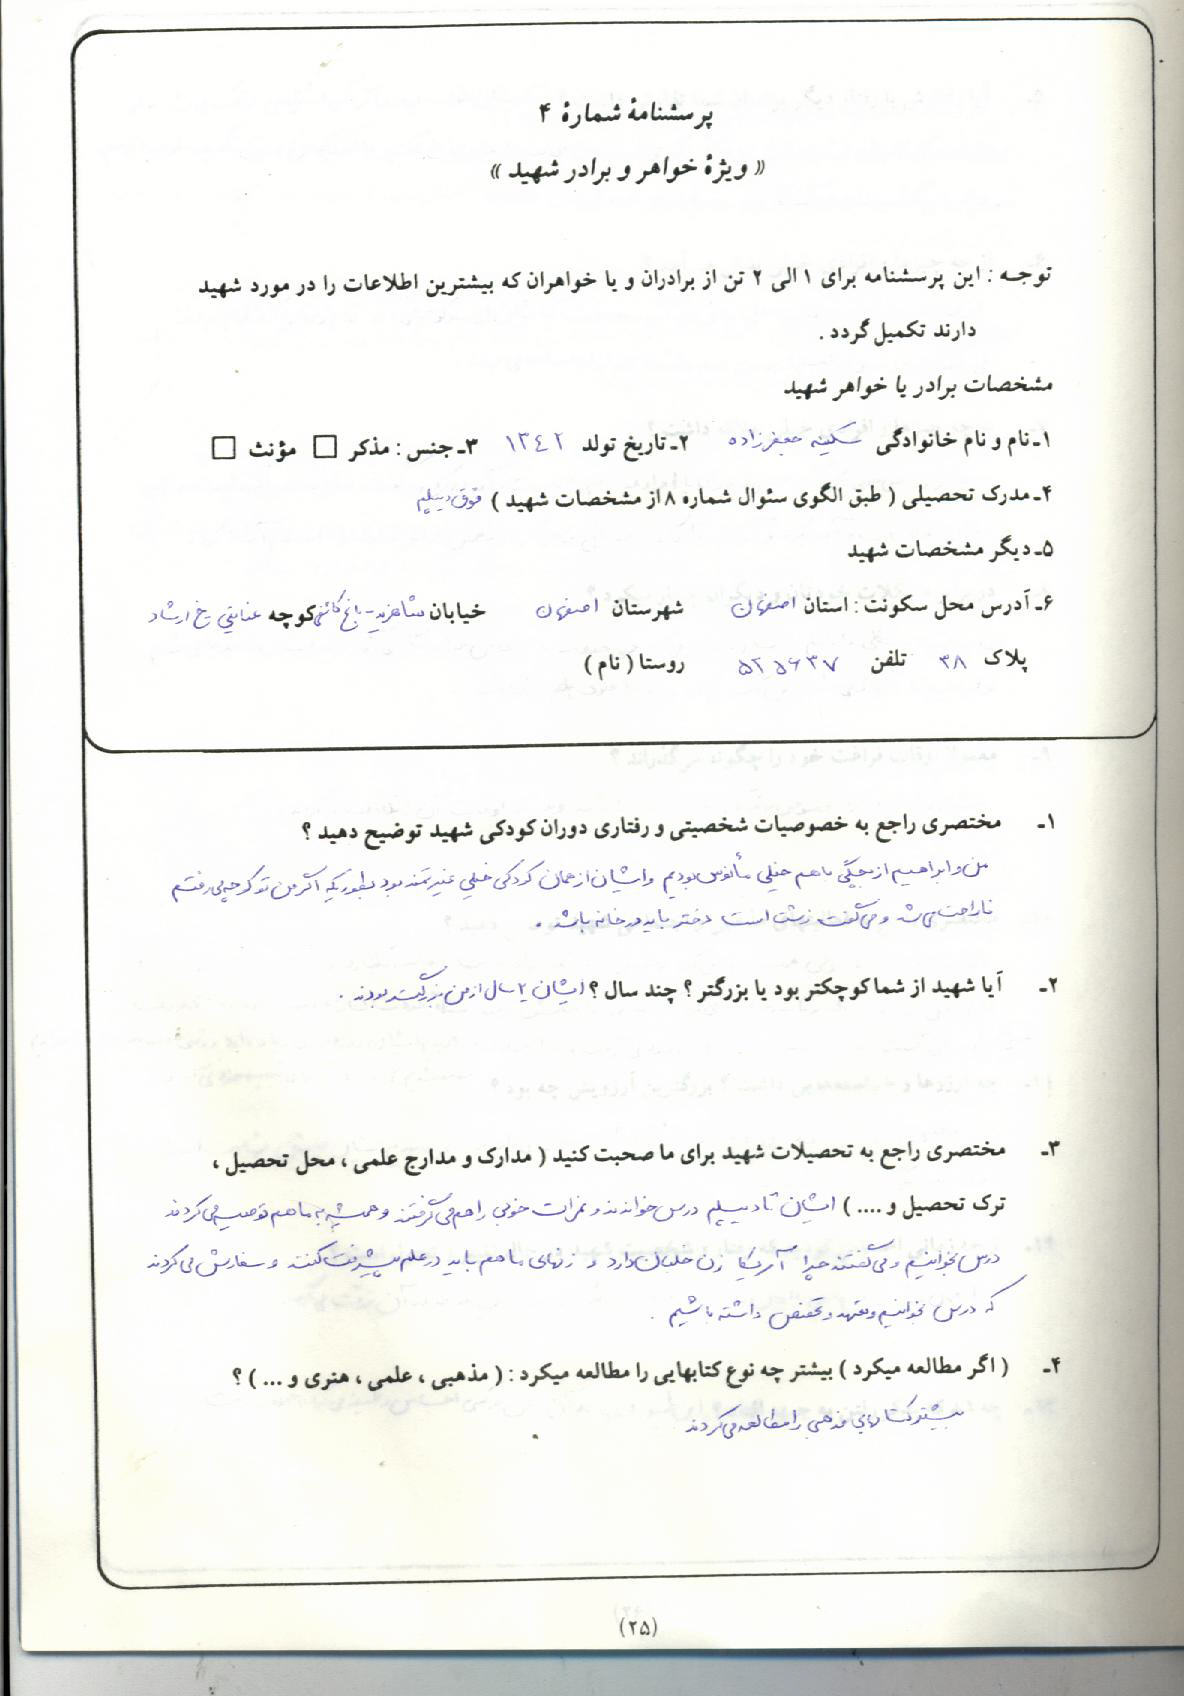 پرسشنامهٔ شمارهٔ ۴
« ویژهٔ خواهر و برادر شهید »
توجه : این پرسشنامه برای ۱ الی ۲ تن از برادران و یا خواهران که بیشترین اطلاعات را در مورد شهید
دارند تکمیل گردد .
مشخصات برادر یا خواهر شهید
۱ـ نام و نام خانوادگی سکینه جعفرزاده ۲ـ تاریخ تولد ۱۳۴۲ ۳ـ جنس : مذکر □ مؤنث □
۴ـ مدرک تحصیلی ( طبق الگوی سئوال شماره ۸ از مشخصات شهید ) فوق دیپلم
۵ـ دیگر مشخصات شهید
۶ـ آدرس محل سکونت : استان اصفهان شهرستان اصفهان خیابان کوچه خ ارشاد
پلاک ۳۸ تلفن ۵۲۵۶۳۷ روستا ( نام )
۱ـ مختصری راجع به خصوصیات شخصیتی و رفتاری دوران کودکی شهید توضیح دهید ؟
من و ابراهیم از بچگی با هم خیلی مأنوس بودیم و ایشان از همان کودکی خیلی غیرتمند بود بطوریکه اگر من تو کوچه می رفتم
ناراحت می شد و می گفت زشت است دختر باید در خانه باشد .
۲ـ آیا شهید از شما کوچکتر بود یا بزرگتر ؟ چند سال ؟ ایشان ۲ سال از من بزرگتر بودند .
۳ـ مختصری راجع به تحصیلات شهید برای ما صحبت کنید ( مدارک و مدارج علمی ، محل تحصیل ،
ترک تحصیل و .... ) ایشان تا دیپلم درس خواندند و نمرات خوبی را هم می گرفتند و همیشه به ما هم توصیه می کردند
درس بخوانیم و می گفتند چرا آمریکا زن خلبان دارد و زنهای ما هم باید در علم پیشرفت کنند و سفارش می کردند
که درس بخوانیم و تعهد و تخصص داشته باشیم .
۴ـ ( اگر مطالعه میکرد ) بیشتر چه نوع کتابهایی را مطالعه میکرد : ( مذهبی ، علمی ، هنری و ... ) ؟
بیشتر کتابهای مذهبی را مطالعه می کردند
(۲۵)